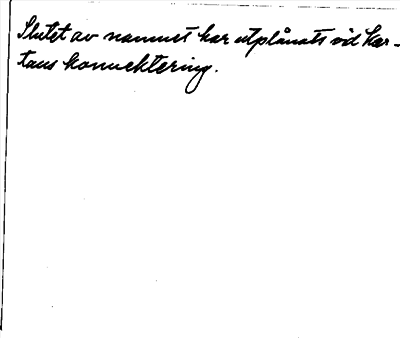 Slutet av namnet har utplånats vid kar-
tans konnektering.